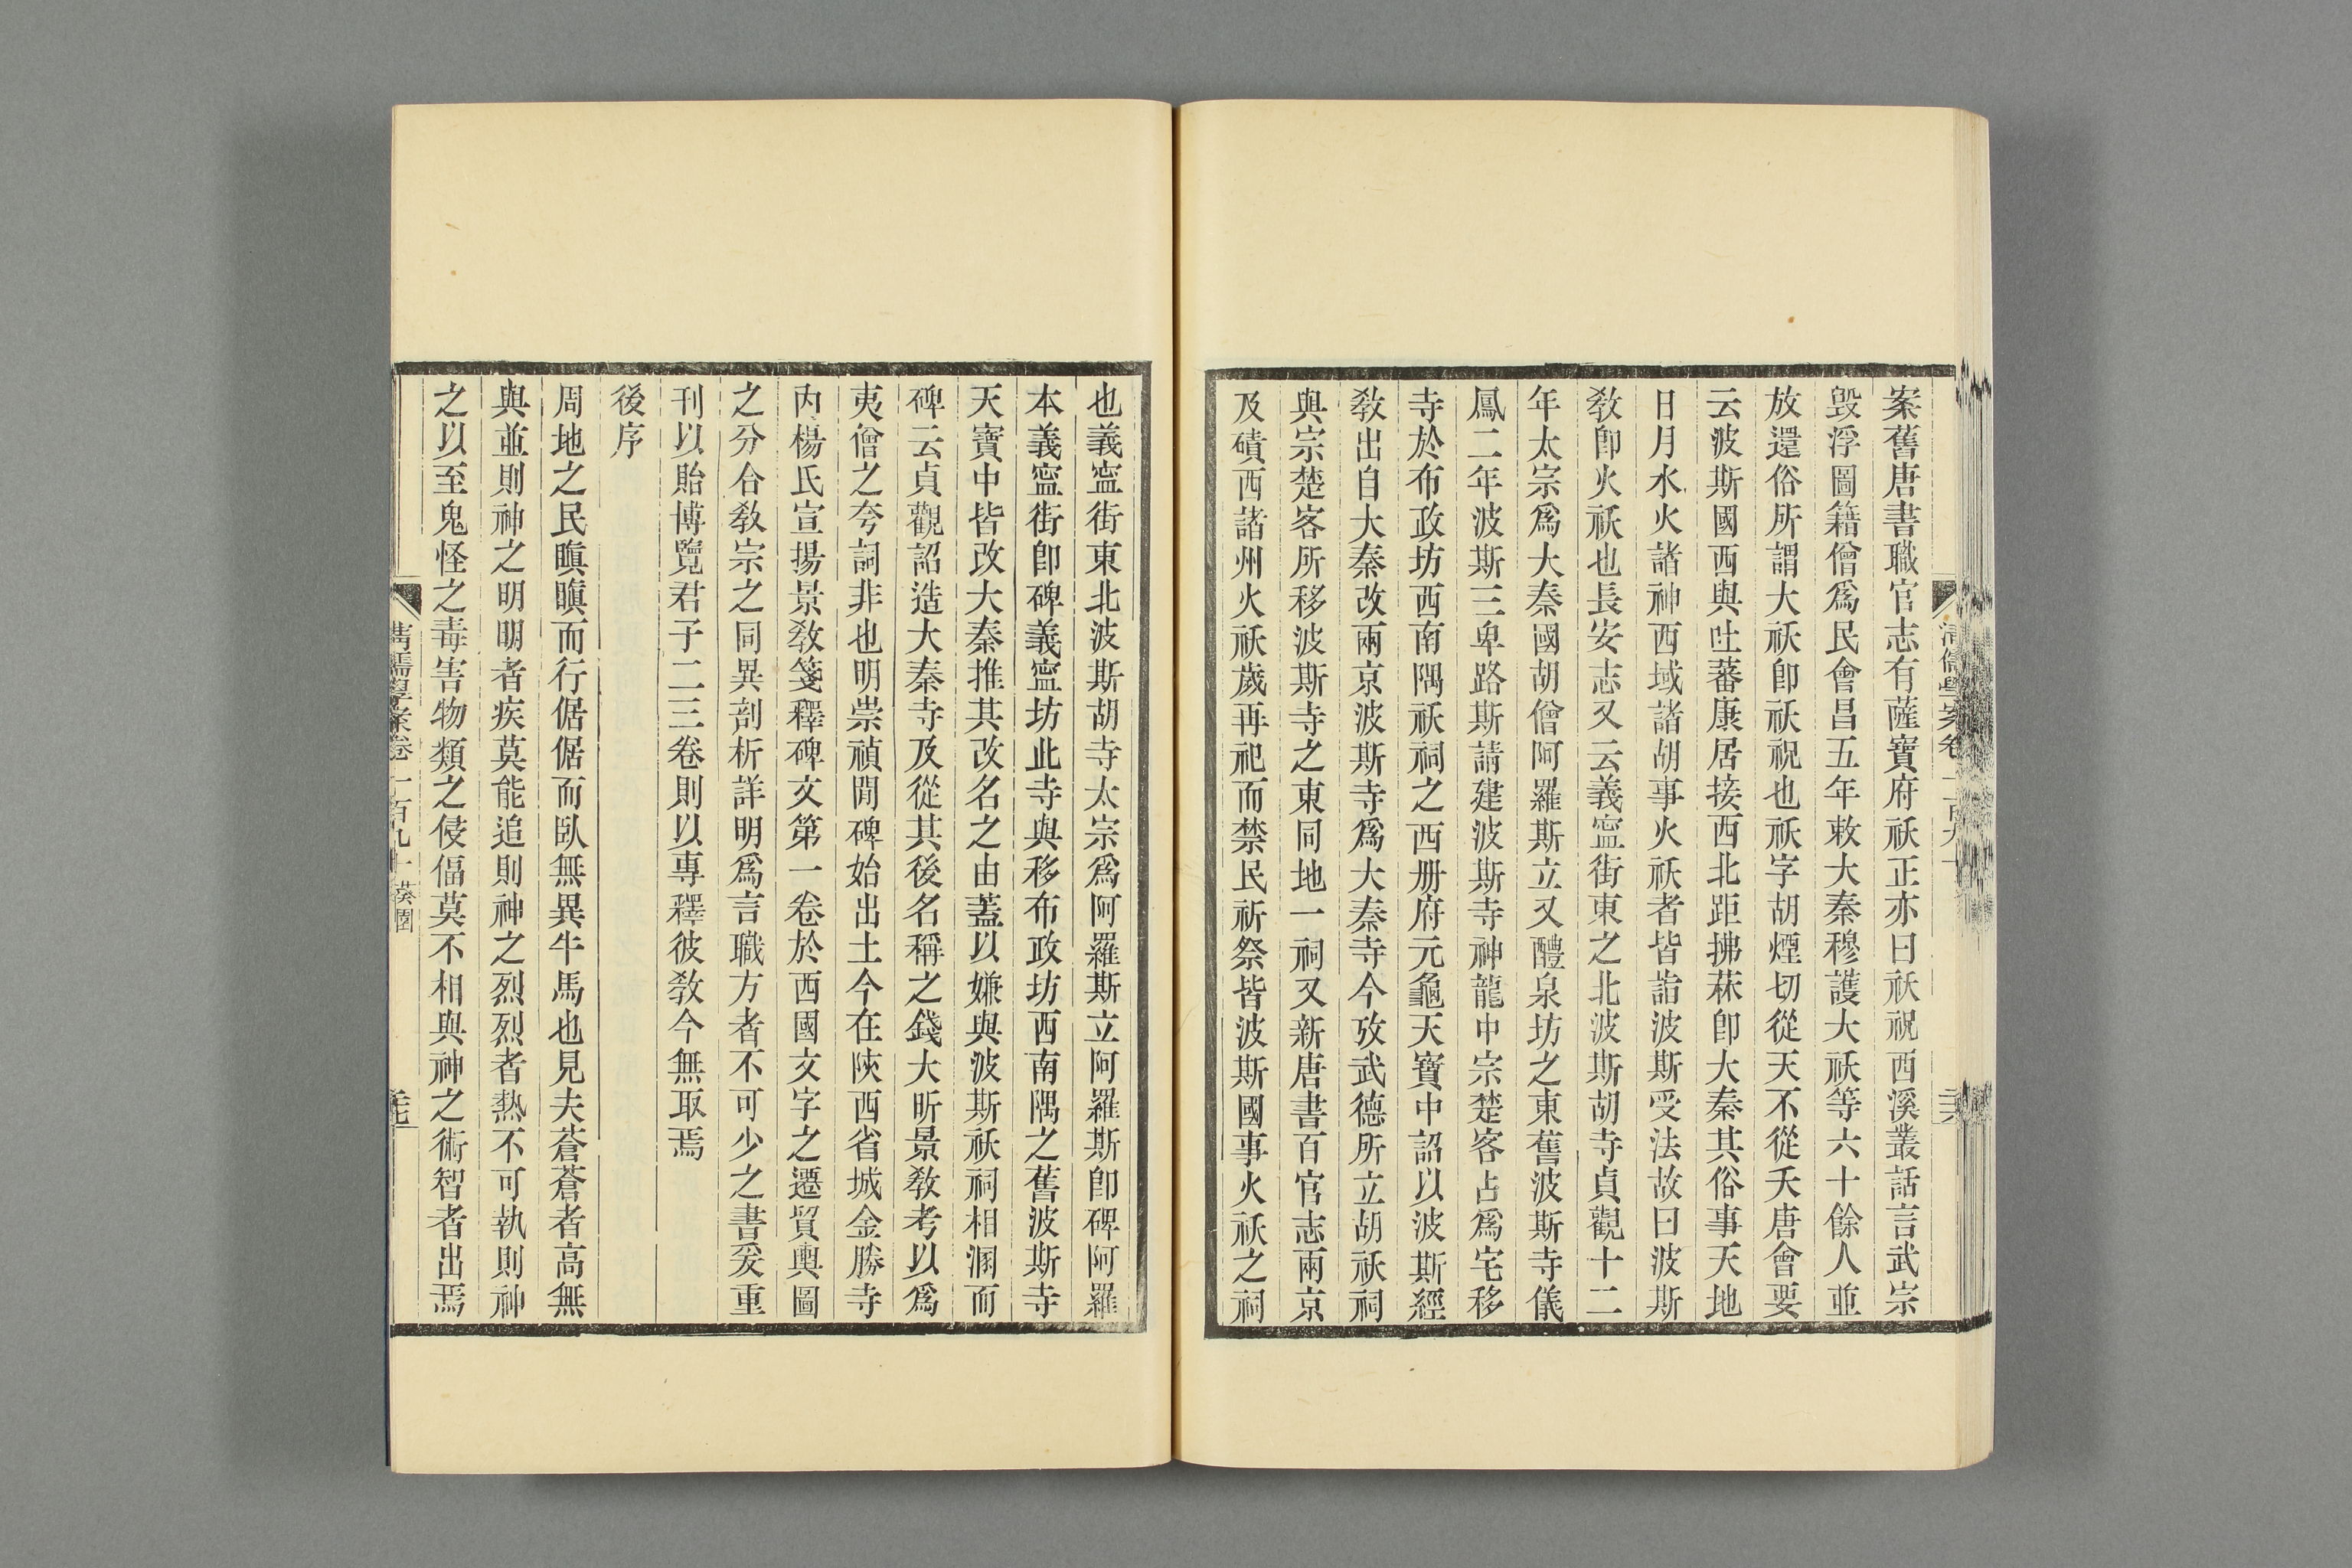 案舊唐書職官志有薩寶府祅正亦曰祅祝西溪叢話言武宗
毀浮圖籍僧爲民會昌五年敕大秦穆護大祅等六十餘人並
放還俗所謂大祅卽祅祝也祅字胡煙切從天不從夭唐會要
云波斯國西與吐蕃康居接西北距拂菻卽大秦其俗事天地
日月水火諸神西域諸胡事火祅者皆詣波斯受法故曰波斯
敎卽火祅也長安志又云義寍街東之北波斯胡寺貞觀十二
年太宗爲大秦國胡僧阿羅斯立又醴泉坊之東舊波斯寺儀
鳳二年波斯三卑路斯請建波斯寺神龍中宗楚客占爲宅移
寺於布政坊西南隅祅祠之西册府元龜天寶中詔以波斯經
敎出自大秦改兩京波斯寺爲大秦寺今攷武德所立胡祅祠
與宗楚客所移波斯寺之東同地一祠又新唐書百官志兩京
及磧西諸州火祅歲再祀而禁民祈祭皆波斯國事火祅之祠
也義寍街東北波斯胡寺太宗爲阿羅斯立阿羅斯卽碑阿羅
本義寍街卽碑義寍坊此寺與移布政坊西南隅之舊波斯寺
天寶中皆改大秦推其改名之由蓋以嫌與波斯祅祠相溷而
碑云貞觀詔造大秦寺及從其後名稱之錢大昕景敎考以爲
夷僧之夸詞非也明崇禎閒碑始出土今在陝西省城金勝寺
內楊氏宣揚景敎箋釋碑文第一卷於西國文字之遷貿輿圖
之分合敎宗之同異剖析詳明爲言職方者不可少之書爰重
刊以貽博覽君子二三卷則以專釋彼敎今無取焉
後序
周地之民瞋瞋而行倨倨而臥無異牛馬也見夫蒼蒼者高無
與並則神之明明者疾莫能追則神之烈烈者熱不可執則神
之以至鬼怪之毒害物類之侵偪莫不相與神之術智者出焉
清儒學案卷一百九十 葵園